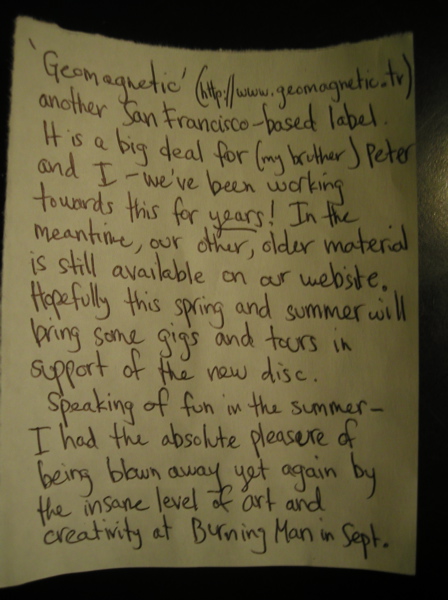 'Geomagnetic' (http://www.geomagnetic.tv)
another San Francisco-based label.
It is a big deal for (my brother) Peter
and I - we've been working
towards this for years! In the
meantime, our other, older material
is still available on our website.
Hopefully this spring and summer will
bring some gigs and tours in
support of the new disc.
Speaking of fun in the summer-
I had the absolute pleasure of
being blown away yet again by
the insane level of art and
creativity at Burning Man in Sept.